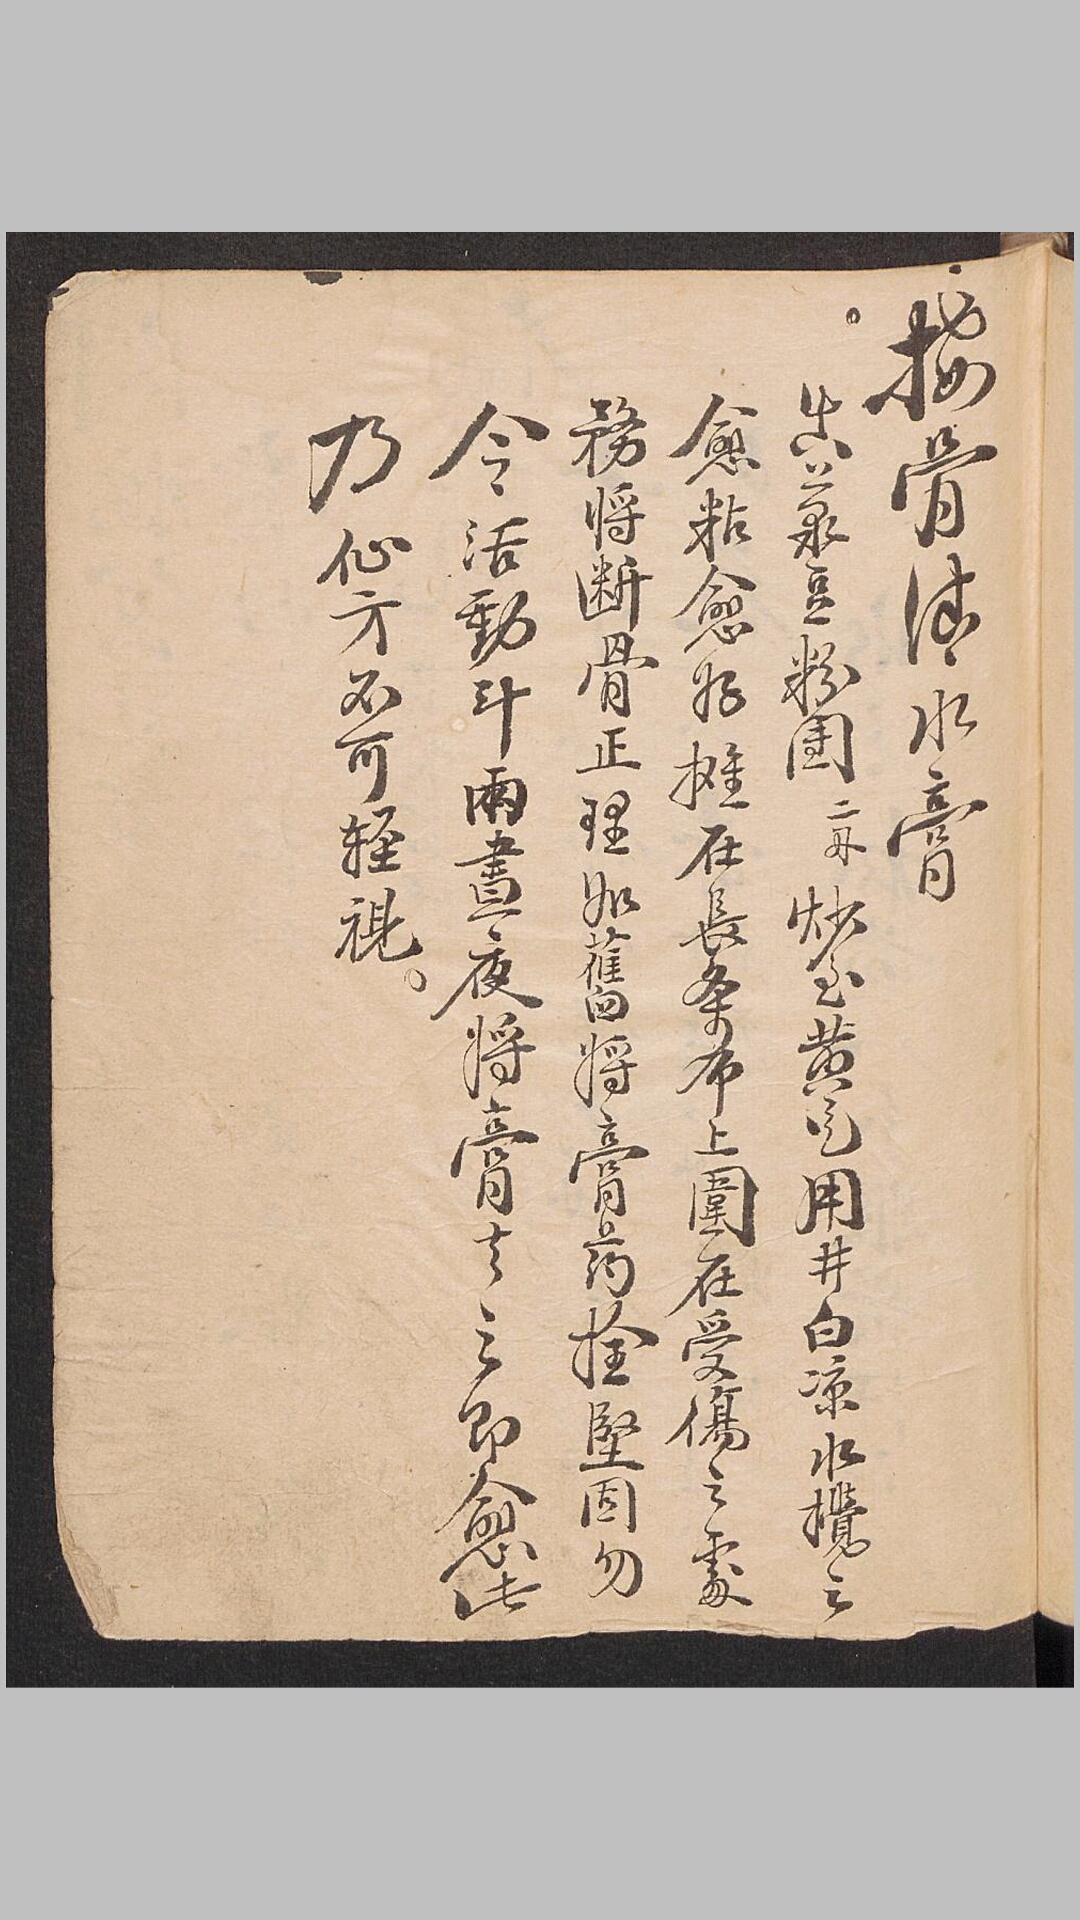 接骨清水膏
真菉豆粉團 二两 炒至黄色用井白凉水攪之
愈粘愈好摊在長条布上圍在受傷之處
務將断骨正理如舊將膏药拴堅固勿
令活動計兩晝夜將膏去之即愈此
乃仙方不可轻視。